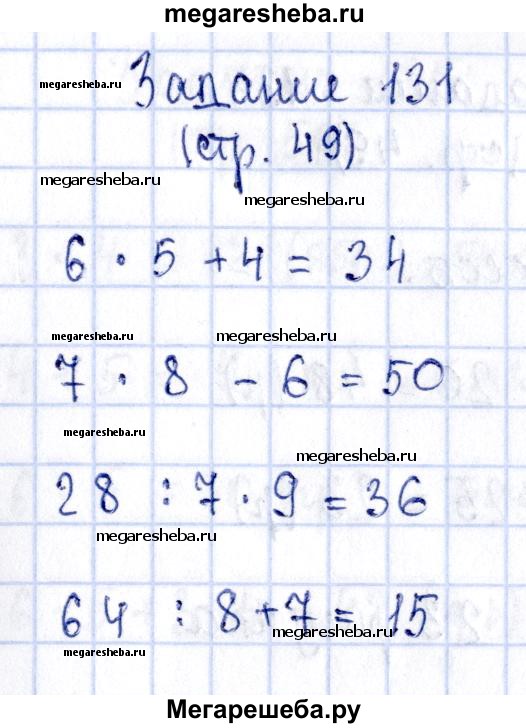 megaresheba.ru
megaresheba.ru
Задание 131
(стр. 49)
megaresheba.ru
megaresheba.ru
6 · 5 + 4 = 34
megaresheba.ru
megaresheba.ru
7 · 8 - 6 = 50
megaresheba.ru
megaresheba.ru
28 : 7 · 9 = 36
megaresheba.ru
64 : 8 + 7 = 15
megaresheba.ru
megaresheba.ru
Мегарешеба.ру